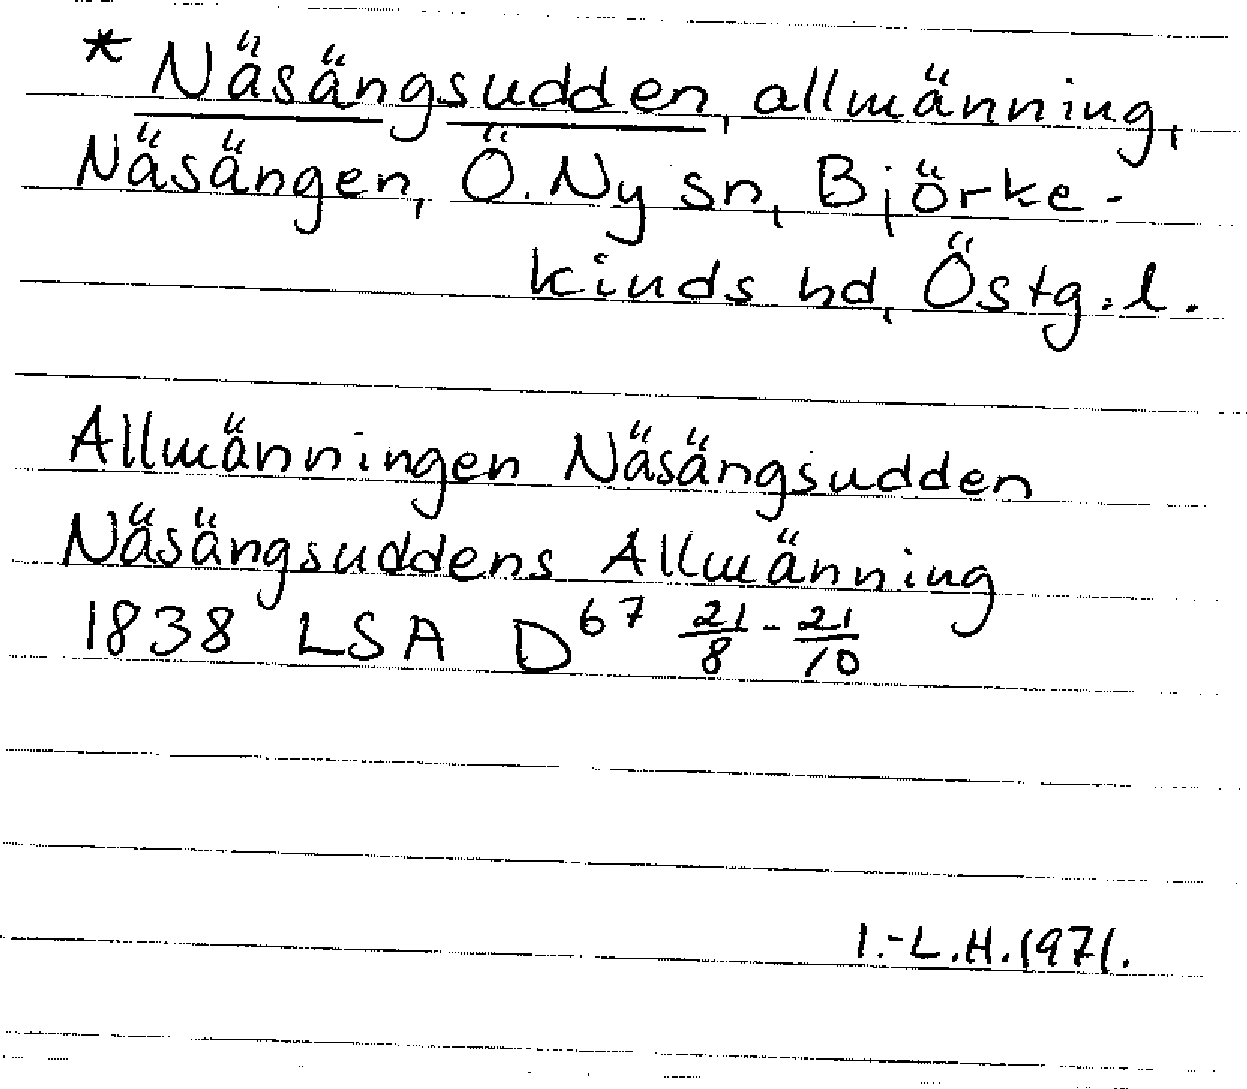 * Näsängsudden, allmänning,
Näsängen, Ö. Ny sn, Björke-
kinds hd, Östg. l.
Allmänningen Näsängsudden
Näsängsuddens Allmänning
1838 LSA D⁶⁷ 21/8 - 21/10
I.-L.H. 1971.